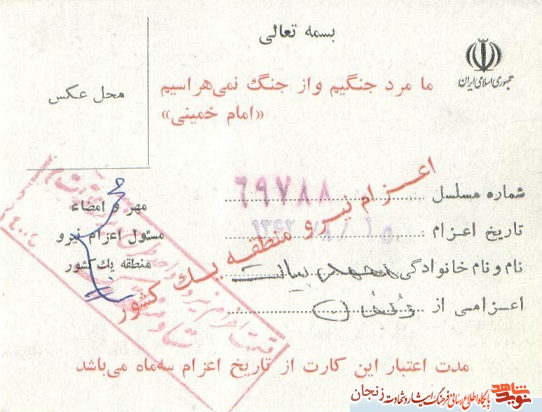 بسمه تعالی
جمهوری اسلامی ایران
ما مرد جنگیم و از جنگ نمی هراسیم
«امام خمینی»
محل عکس
شماره مسلسل ۶۹۷۸۸
تاریخ اعزام
نام و نام خانوادگی
اعزامی از زنجان
مهر و امضاء
مسئول اعزام نیرو
منطقه یك کشور
اعزام نیرو منطقه یك کشور
مدت اعتبار این کارت از تاریخ اعزام سه ماه می باشد
نوید شاهد
پایگاه اطلاع رسانی فرهنگ ایثار و شهادت زنجان